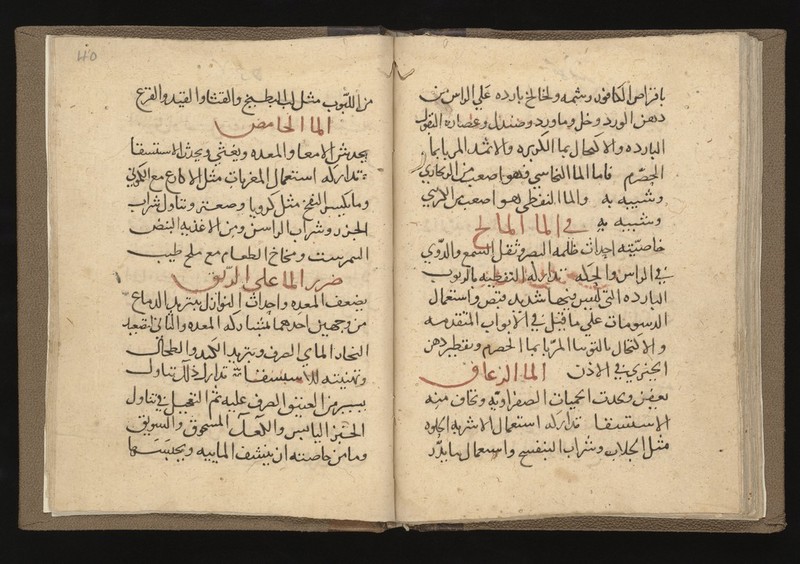 باقراص الكافور وشمه ولخالخ بارده علي الراس من
دهن الورد وخل وماورد وصندل وعصاره البقول
البارده والاكتحال بما الكزبره والاثمد المربا بما
الحصرم فاما الما النحاسي فهو اصعب من
وشبيه به والما النفطي هو اصعب من الكبريتي
وشبيه به في الما المالح
خاصيته احداث ظلمه البصر وثقل السمع والدوي
في الراس والحكه تداركه
البارده التي ليس فيها شديد قبض واستعمال
الدسومات علي ما قيل في الابواب المتقدمه
والاكتحال بالتوتيا المربا بما الحصرم وتقطير دهن
الخيري في الاذن الما الزعاق
يعفن ويحدث الحميات الصفراويه ويخاف منه
الاستسقا تداركه استعمال الاشربه الحلوه
مثل الجلاب وشراب البنفسج واستعمال ما يدر
40
من اللبوب مثل لب البطيخ والقثا والقثد والقرع
الما الحامض
يجدش الامعا والمعده ويغثي ويحدث الاستسقا
تداركه استعمال المغريات مثل الاكارع مع
وما يكسر النفخ مثل كرويا وصعتر وتناول شراب
الجزر وشراب الراسن ومن الاغذيه البيض
النمبرشت ومخاخ العظام مع ملح طيب
ضرر الما علي الريق
يضعف المعده واحداث النوازل بتبريد الدماغ
من وجهين احدهما بمشاركه المعده والثاني تصعيد
البخار الماي الصرف وتبريد الكبد والطحال
وتهيئته للاستسقا تدارك ذلك تناول
يسير من العتيق الصرف عليه ثم التعجيل في تناول
الخبز اليابس والكعك المسحوق والسويق
وما من خاصته ان ينشف الماييه ويحبسها